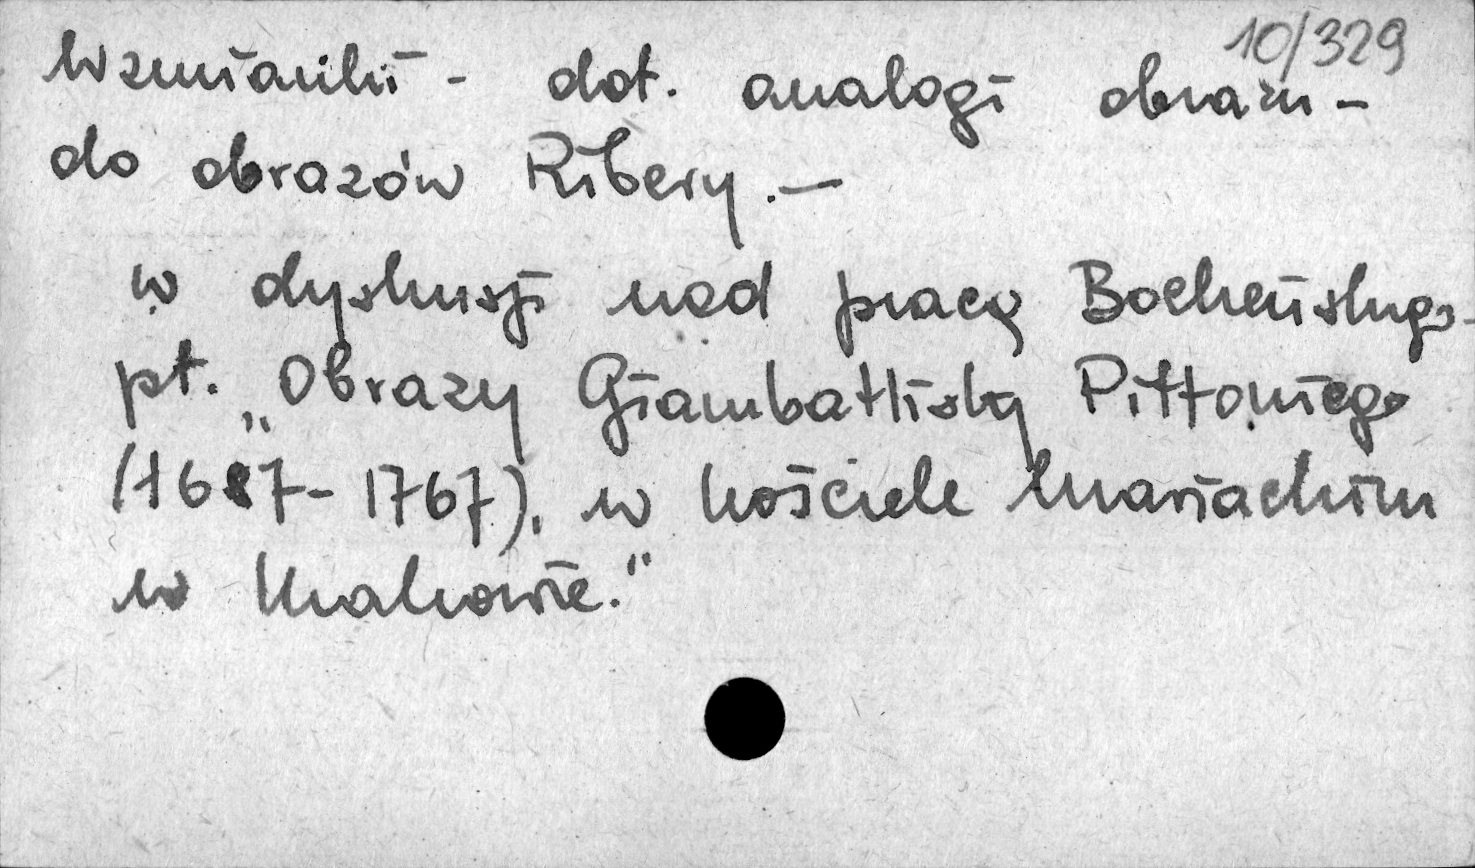 10/329
Wzmianki - dot. analogi obrazu -
do obrazów Ribery. —
w dyskusji nad pracą Bocheńskego
pt. „Obrazy Giambattisty Pittoniego
(1687-1767), w kościele Mariackim
w Krakowie."